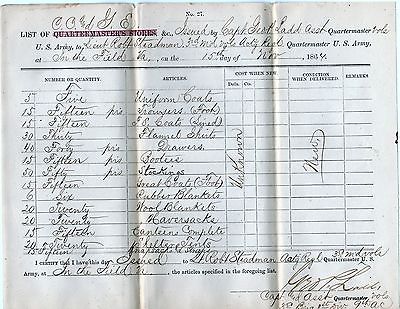 No. 27.
C C & G. E.
LIST OF QUARTERMASTER'S STORES &c., Issued by Capt Geo Ladd Asst Quartermaster Vols
U. S. Army, to Lieut Robt Steadman, 3d Md Vols Actg Regl Quartermaster U. S. Army,
at In the Field Va, on the 15th day of Nov, 1864.
NUMBER OR QUANTITY. ARTICLES. COST WHEN NEW. CONDITION WHEN DELIVERED. REMARKS.
5 Five Uniform Coats
15 Fifteen prs Trowsers (Foot)
15 Fifteen Coats (Lined)
30 Thirty Flannel Shirts
40 Forty prs Drawers
15 Fifteen prs Bootees
50 Fifty prs Stockings
15 Fifteen Great Coats (Foot)
6 Six Rubber Blankets
20 Twenty Wool Blankets
20 Twenty Haversacks
15 Fifteen Canteens Complete
20 Twenty Shelter Tents
15 Fifteen
Unknown
New
I CERTIFY that I have this day Issued to Lt Robt Steadman Actg Regl Quartermaster U. S.
3d Md Vols
Army, at In the Field Va, the articles specified in the foregoing list.
Capt & Asst Quartermaster Vols
3d Brig 1st Div 9th A.C.